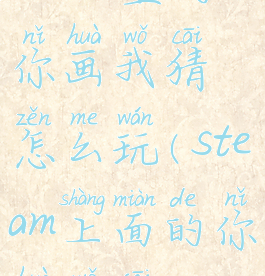 nǐ huà wǒ cāi
你画我猜
zěn me wán
怎么玩(ste
shàng miàn de nǐ
am上面的你